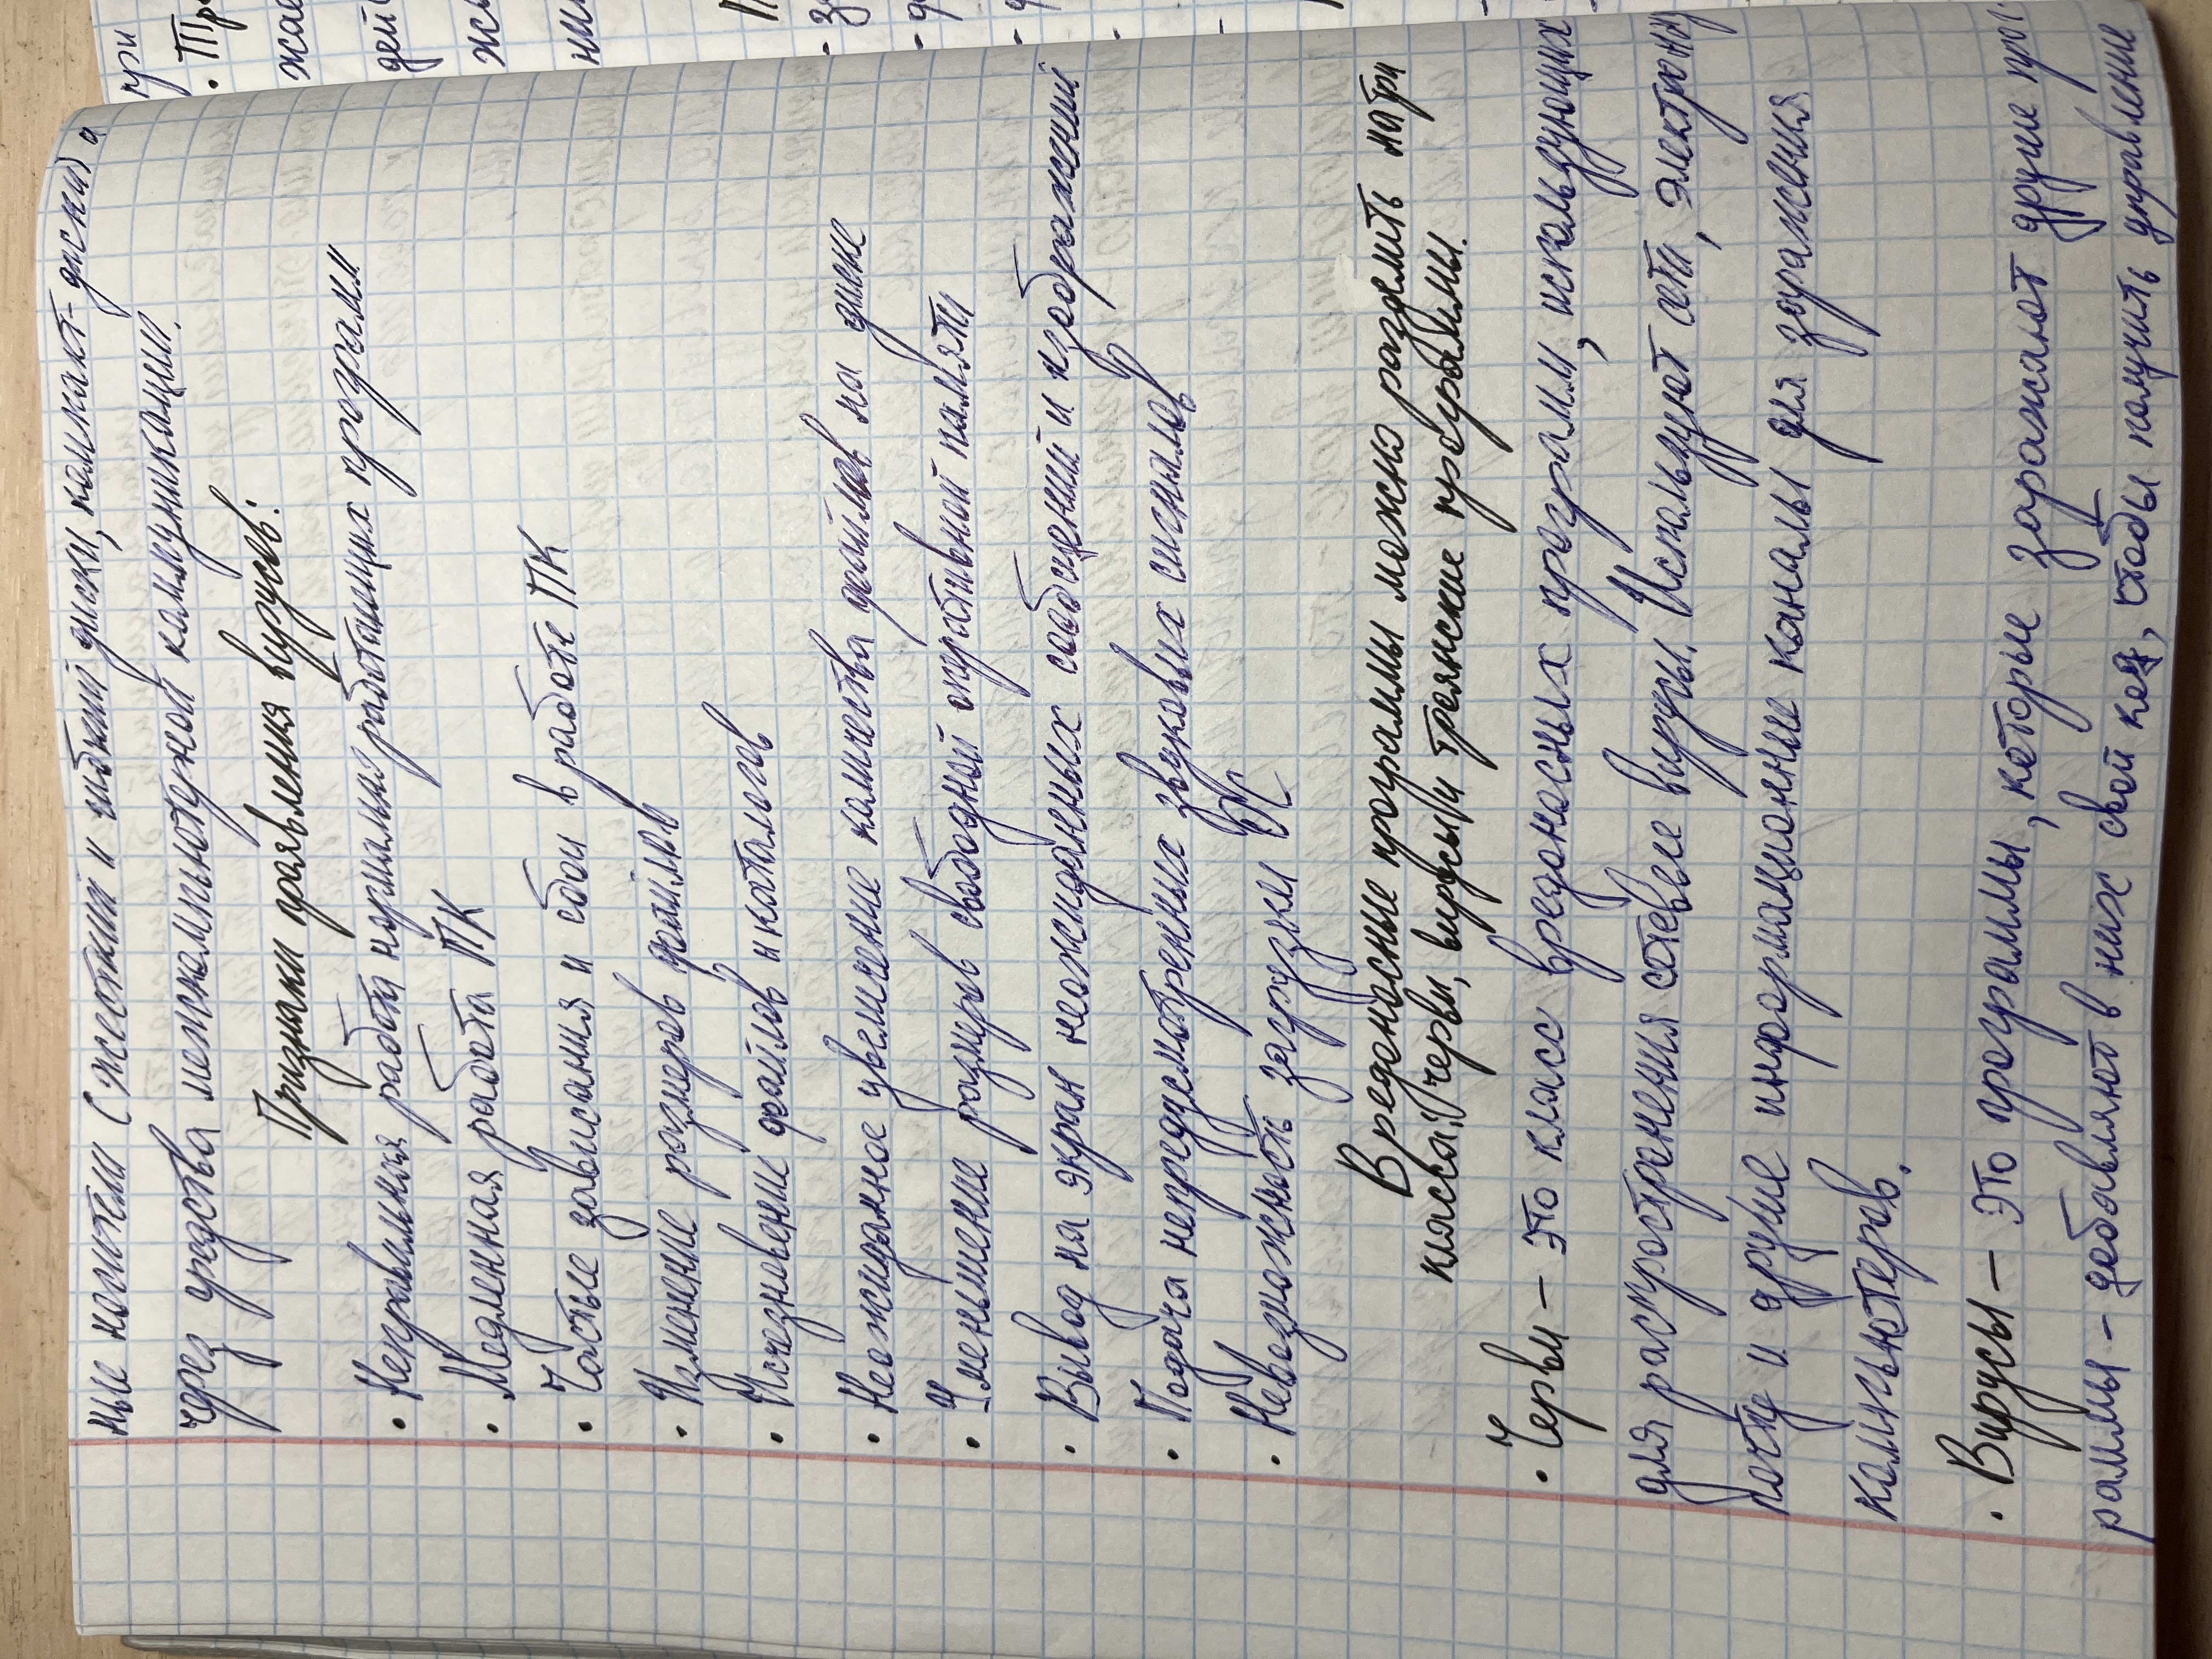 ные носители (жесткий и гибкий диски, компакт-диски) а
через средства межкомпьютерной коммуникации.
Признаки проявления вирусов:
• Неправильная работа нормально работающих программ
• Медленная работа ПК
• Частые зависания и сбои в работе ПК
• Изменение размеров файлов
• Исчезновение файлов и каталогов
• Неожиданное увеличение количества файлов на диске
• Уменьшение размеров свободной оперативной памяти
• Вывод на экран неожиданных сообщений и изображений
• Подача непредусмотренных звуковых сигналов
• Невозможность загрузки ОС
Вредоносные програмы можно разделить на три
класса: черви, вирусы и троянские програмы.
• Черви – это класс вредоносных програм, использующих
для распространения сетевые вирусы. Используют сети, электронну
почту и другие информационные каналы для заражения
компьютеров.
• Вирусы – это програмы, которые заражают другие прог.
раммы – добавляют в них свой код, чтобы получить управление
при
• Тро
жае
дей
ни